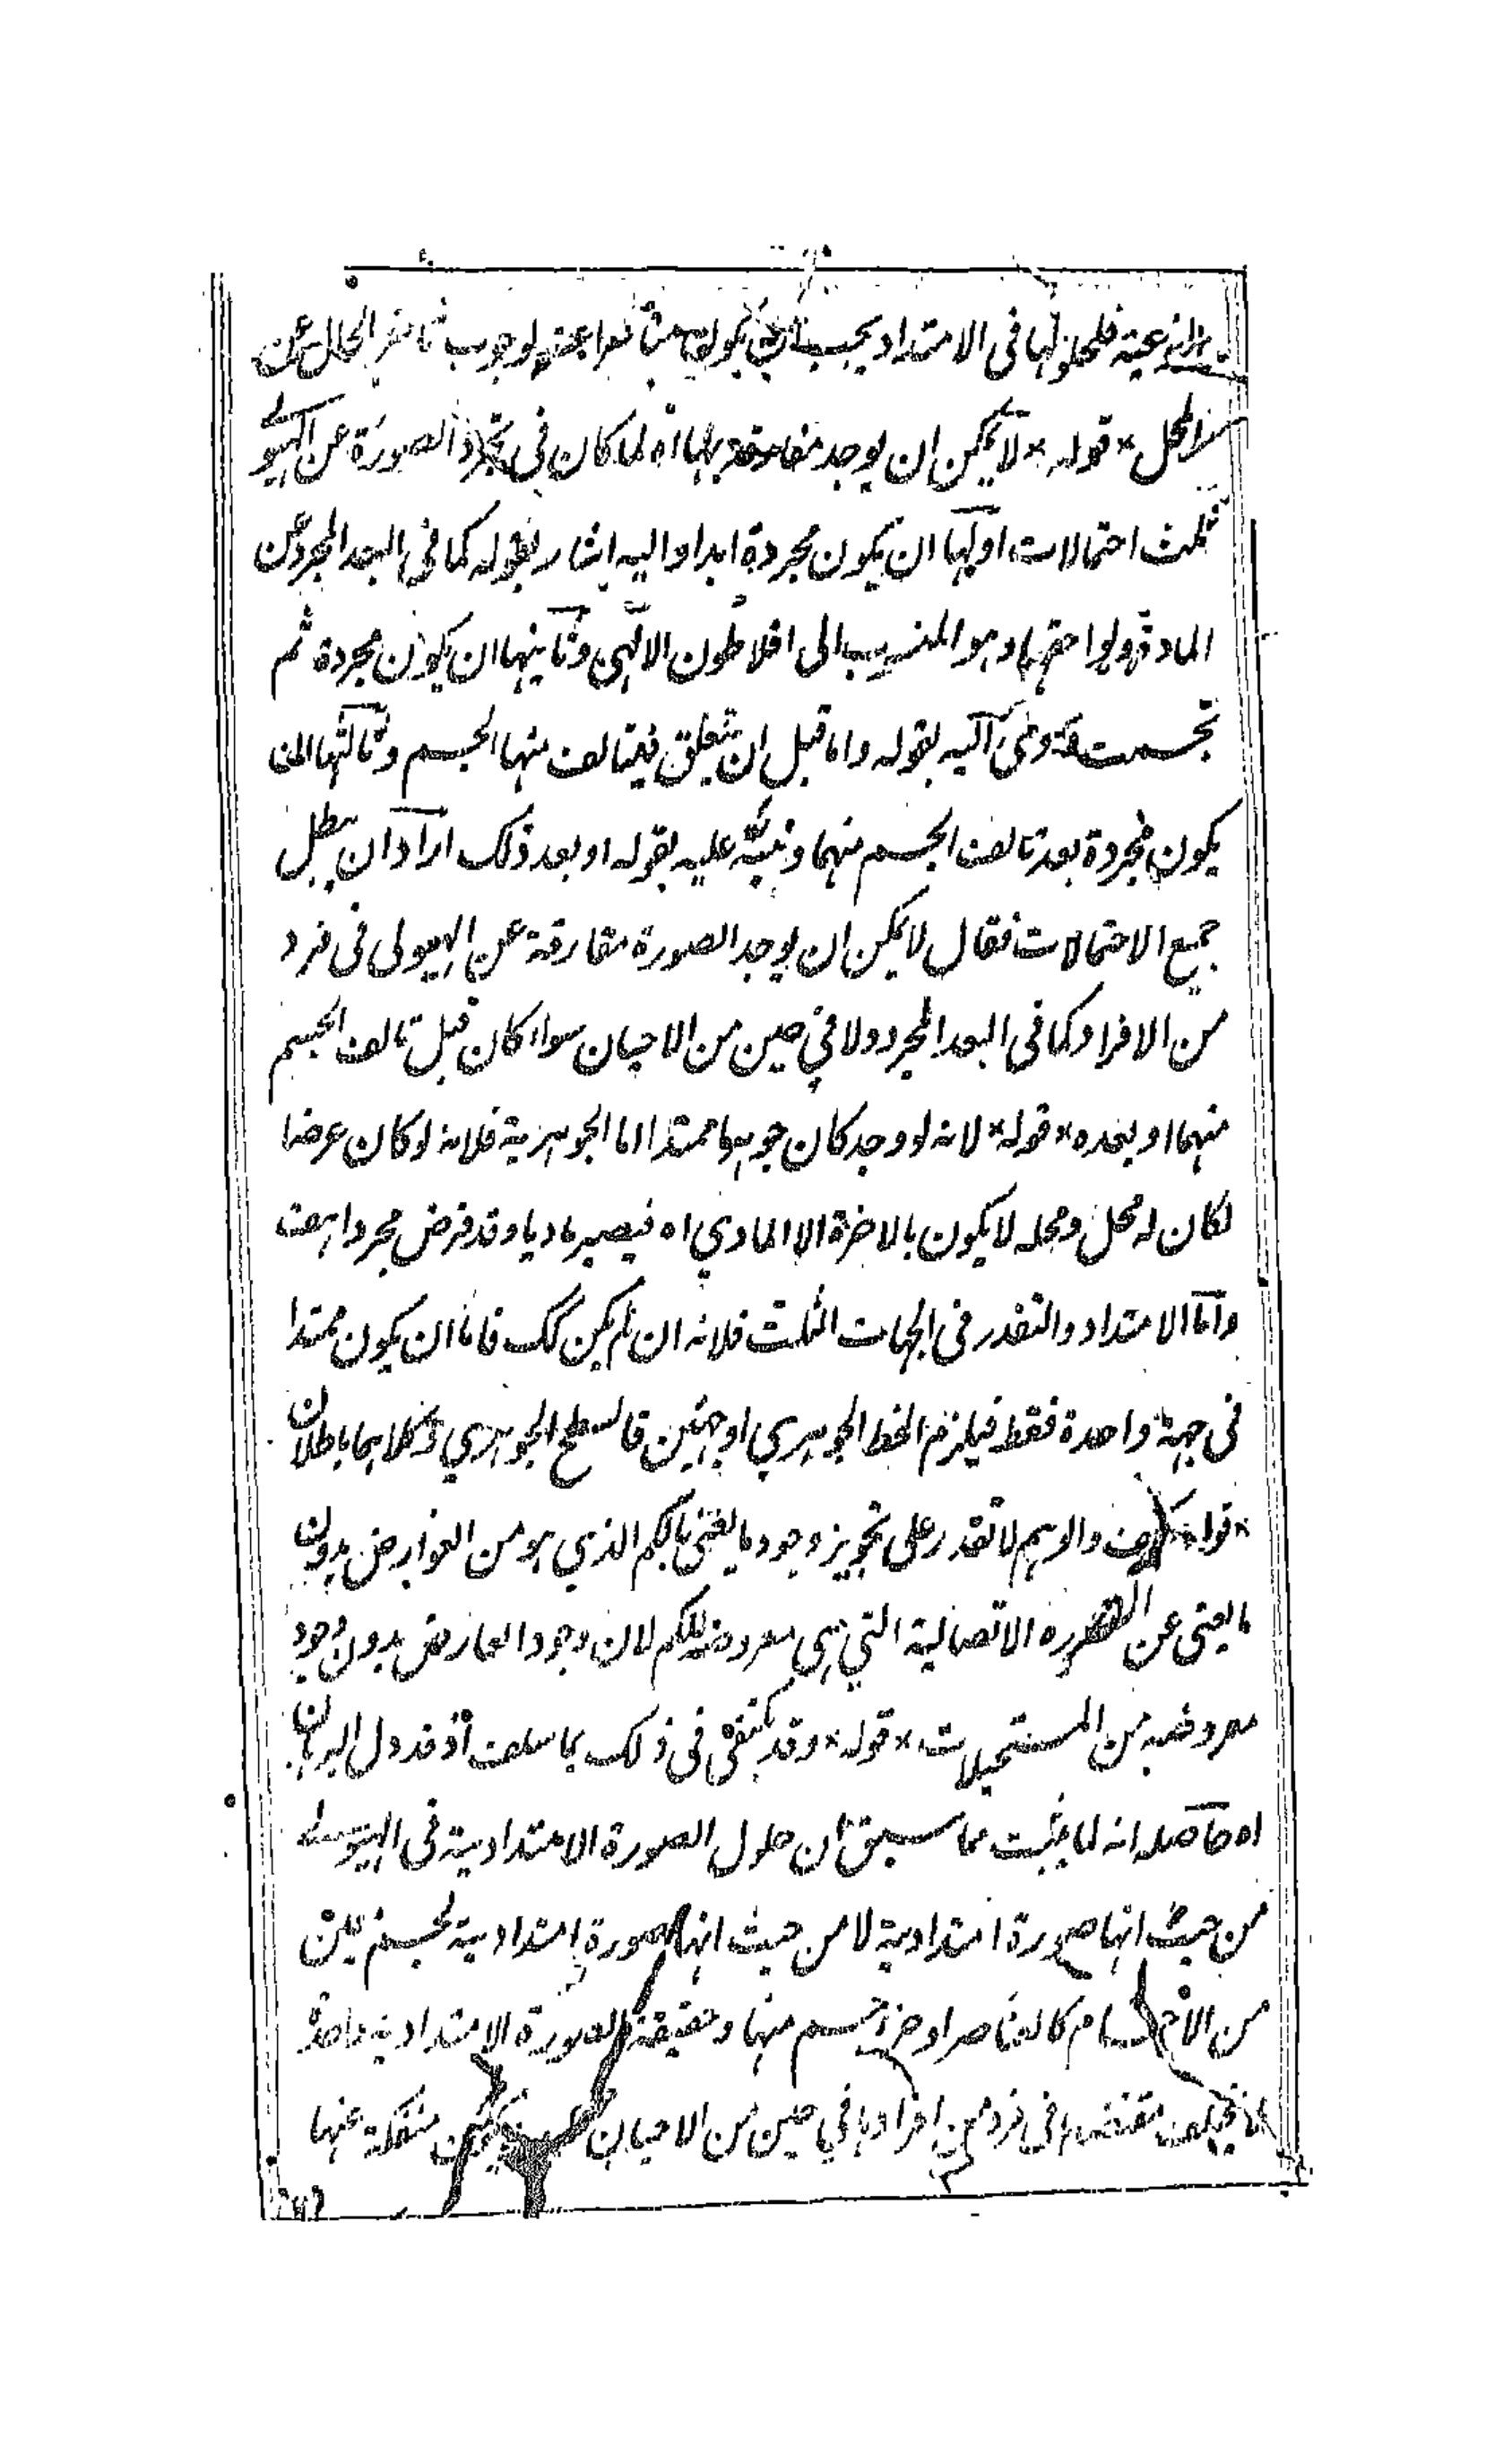 النوعية فلحلولها في الامتداد يجب ان يكون متأخرا عنه لوجوب تأخر الحال عن
المحل * قوله * لا يمكن ان يوجد مفارقة لها اه لما كان في تجرد الصورة عن الهيولى
ثلث احتمالات اولها ان يكون مجردة ابدا واليه اشار بقوله كما في البعد المجرد عن
المادة ولواحقها وهو المنسوب الى افلاطون الالهى وثانيها ان يكون مجردة ثم
تجسمت اليه بقوله واما قبل ان يتعلق فيتالف منها الجسم وثالثها ان
يكون مجردة بعد تالف الجسم منهما ونبه عليه بقوله او بعد ذلك اراد ان يبطل
جميع الاحتمالات فقال لا يمكن ان يوجد الصورة مفارقة عن الهيولى فى فرد
من الافراد كما في البعد المجرد ولا في حين من الاحيان سواء كان قبل تالف الجسم
منهما او بعده * قوله * لانه لو وجد كان جوهرا ممتدا اما الجوهرية فلانه لو كان عرضا
لكان له محل ومحله لا يكون بالاخرة الا المادي اه فيصير ماديا وقد فرض مجردا هف
واما الامتداد والتقدر في الجهات الثلث فلانه ان لم يكن كك فاما ان يكون ممتدا
فى جهة واحدة فقط فيلزم الخط الجوهري او جهتين فالسطح الجوهري وكلاهما باطلان
* قوله * كيف والوهم لا تقدر على تجويز وجود ما يعنى بالكم الذي هو من العوارض بدون
ما يعنى عن الصورة الاتصالية التي هى معروضة للكم لان وجود العارض بدون وجود
معروضه من المستحيلات * قوله * وقد يكتفى فى ذلك بما سلف اذ قد دل البرهان
اه حاصله انه لما يثبت مما سبق ان حلول الصورة الامتدادية فى الهيولى
من حيث انها صورة امتدادية لا من حيث انها صورة امتدادية لجسم معين
من الاجسام كالعناصر او جزء جسم منها وحقيقة الصورة الامتدادية واحدة
لا يختلف مقتضاها فى فرد من افرادها في حين من الاحيان منفكة عنها